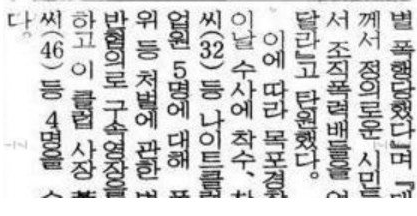 별 폭행당했다」며 『대
께서 정의로운 시민들
서 조직폭력배들을 엄
달라』고 탄원했다。
이에 따라 목포경찰
이날 수사에 착수、
씨(32) 등 나이트클럽
업원 5명에 대해 폭
위 등 처벌에 관한 법
반혐의로 구속영장을
하고 이 클럽 사장
씨(46) 등 4명을
다。